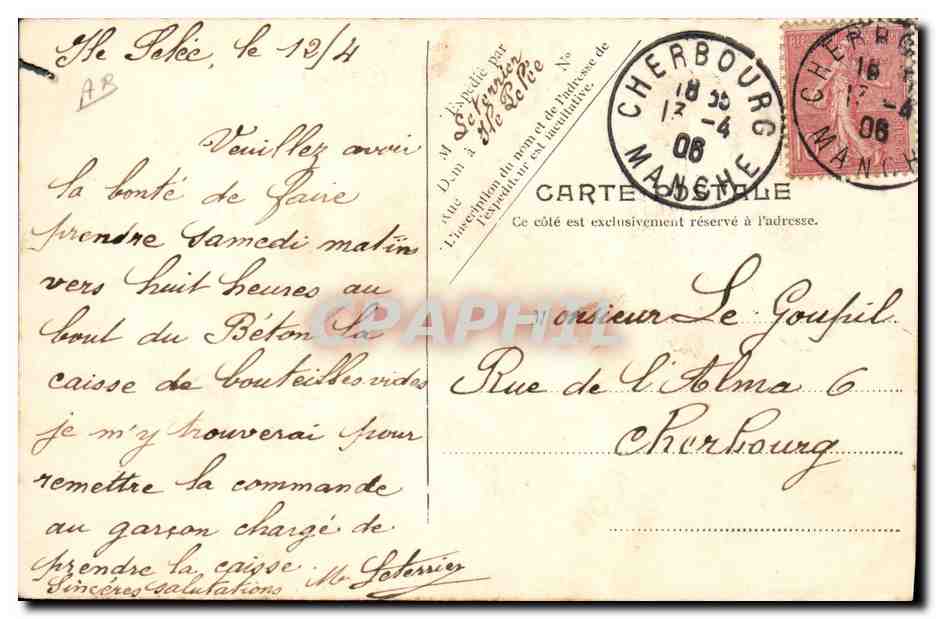 Ile Pelée, le 12/4
AR
Veuillez avoir
la bonté de faire
prendre samedi matin
vers huit heures au
bout du Béton la
caisse de bouteilles vides
je m'y trouverai pour
remettre la commande
au garçon chargé de
prendre la caisse.
Sincères salutations M Leterrier
Expédié par
M Leterrier
Dem à Ile Pelée
Rue N°
L'inscription du nom et de l'adresse de
l'expéditeur est facultative.
CHERBOURG
18 55
13 -4
06
MANCHE
CHERBO
18
13 -4
06
MANCH
CARTE POSTALE
Ce côté est exclusivement réservé à l'adresse.
CPAPHIL
Monsieur Le Goupil
Rue de l'Alma 6
Cherbourg